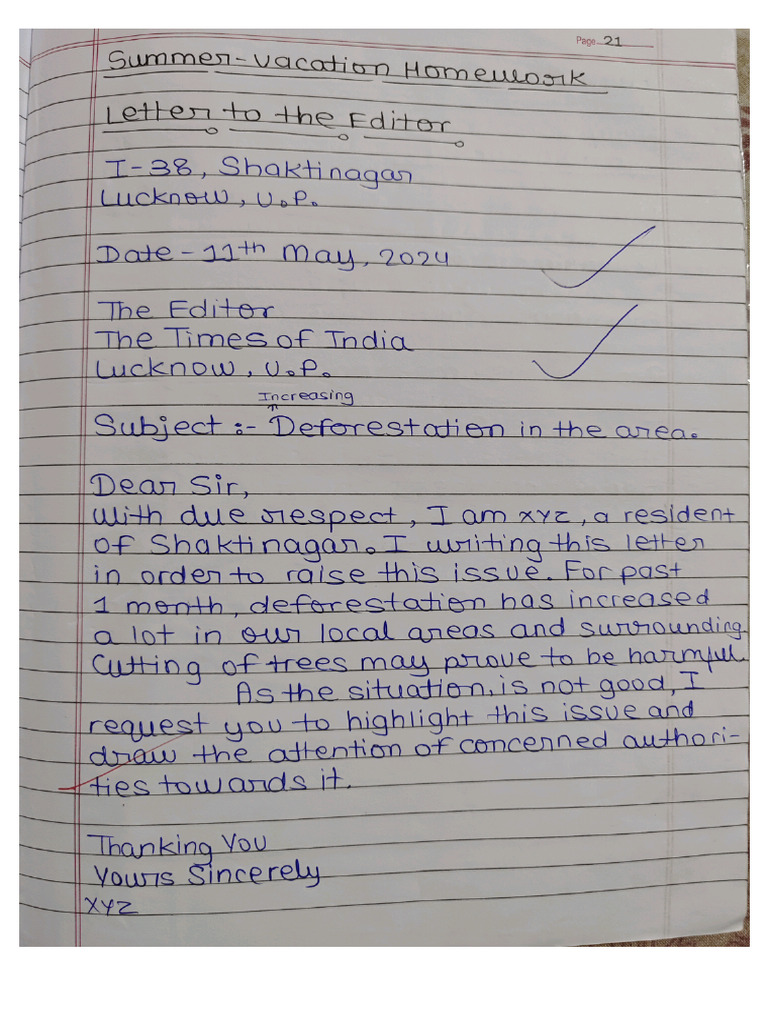 Page 21
Summer-Vacation Homework
Letter to the Editor
I-38, Shaktinagar
Lucknow, U.P.
Date - 11th May, 2024
The Editor
The Times of India
Lucknow, U.P.
Increasing
Subject :- Deforestation in the area.
Dear Sir,
With due respect, I am XYZ, a resident
of Shaktinagar. I writing this letter
in order to raise this issue. For past
1 month, deforestation has increased
a lot in our local areas and surrounding.
Cutting of trees may prove to be harmful.
As the situation is not good, I
request you to highlight this issue and
draw the attention of concerned authori-
ties towards it.
Thanking You
Yours Sincerely
XYZ